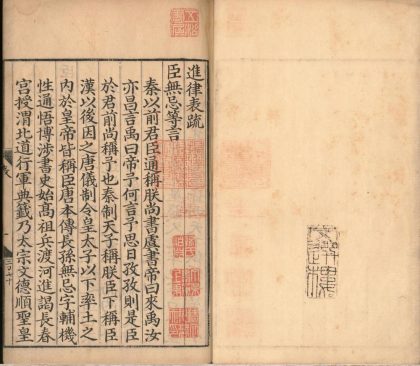 進律表疏
臣無忌等言
秦以前君臣通稱朕尚書虞書帝曰來禹汝
亦昌言禹曰帝予何言予思日孜孜則是臣
於君前尚稱予也秦制天子稱朕臣下稱臣
漢以後因之唐儀制令皇太子以下率土之
內於皇帝皆稱臣唐本傳長孫無忌字輔機
性通悟博涉書史始高祖兵渡河進謁長春
宮授渭北道行軍典籤乃太宗文德順聖皇